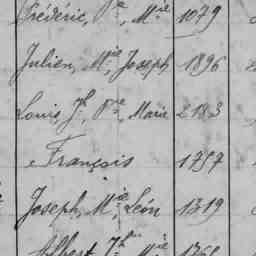 Frédéric, P.re, M.rie 1079
Julien, M.ie, Joseph 1896
Louis, J.h, P.re, Marie 2183
François 1757
Joseph, M.ie, Léon 1319
Albert, J.h, M.ie